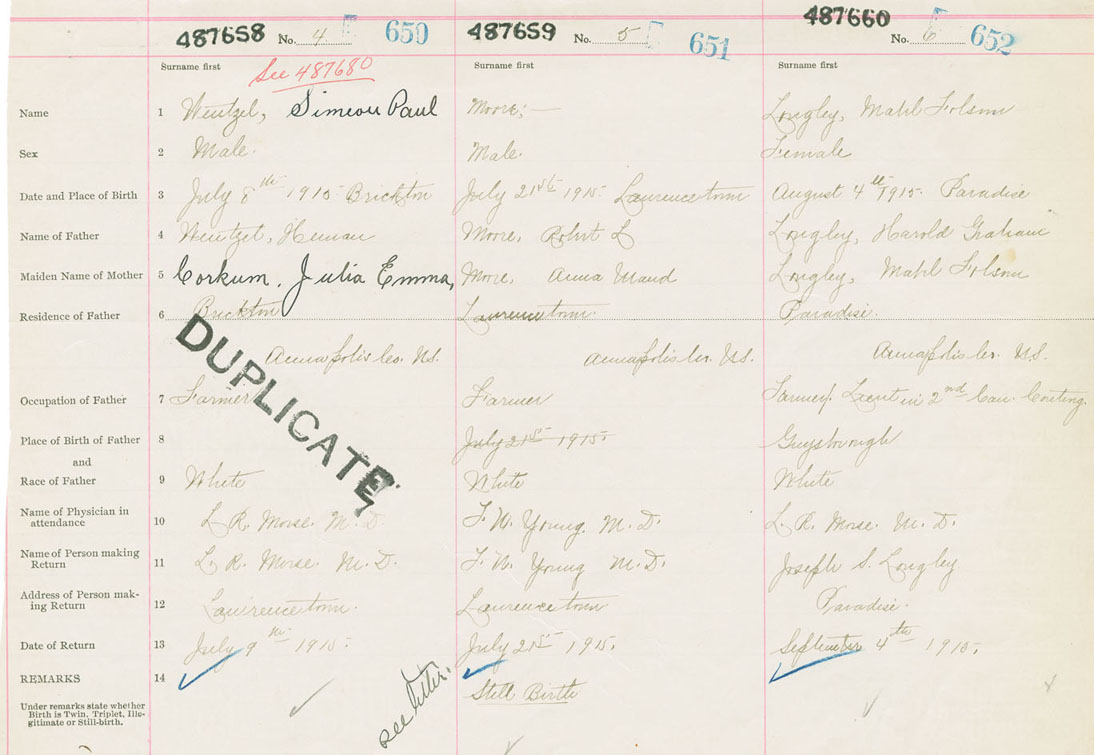 487658 No. 4 650 487659 No. 5 651 487660 No. 6 652
Surname first Surname first Surname first
See 487680
Name 1 Wentzel, Simeon Paul Moore, — Longley, Mabl Folsom
Sex 2 Male. Male. Female
Date and Place of Birth 3 July 8th 1915 Brickton July 21st 1915. Laurencetown August 4th 1915. Paradise
Name of Father 4 Wentzel, Heman Moore, Robert L Longley, Harold Graham
Maiden Name of Mother 5 Corkum, Julia Emma, Moore, Anna Maud Longley, Mabl Folsom
Residence of Father 6 Brickton Laurencetown. Paradise.
Annapolis Co. N.S. Annapolis Co. N.S. Annapolis Co. N.S.
DUPLICATE
Occupation of Father 7 Farmer Farmer Farmer. Lieut in 2nd Can. Conting.
Place of Birth of Father 8 July 21st 1915. Guysborough
and
Race of Father 9 White White White
Name of Physician in
attendance 10 L. R. Morse. M. D. F. W. Young. M. D. L. R. Morse. M. D.
Name of Person making
Return 11 L. R. Morse. M. D. F. W. Young M. D. Joseph S. Longley
Address of Person mak-
ing Return 12 Lawrencetown. Laurencetown Paradise.
Date of Return 13 July 9th 1915. July 21st 1915. September 4th 1915.
REMARKS 14 Still Birth
see letter.
Under remarks state whether
Birth is Twin, Triplet, Ille-
gitimate or Still-birth.